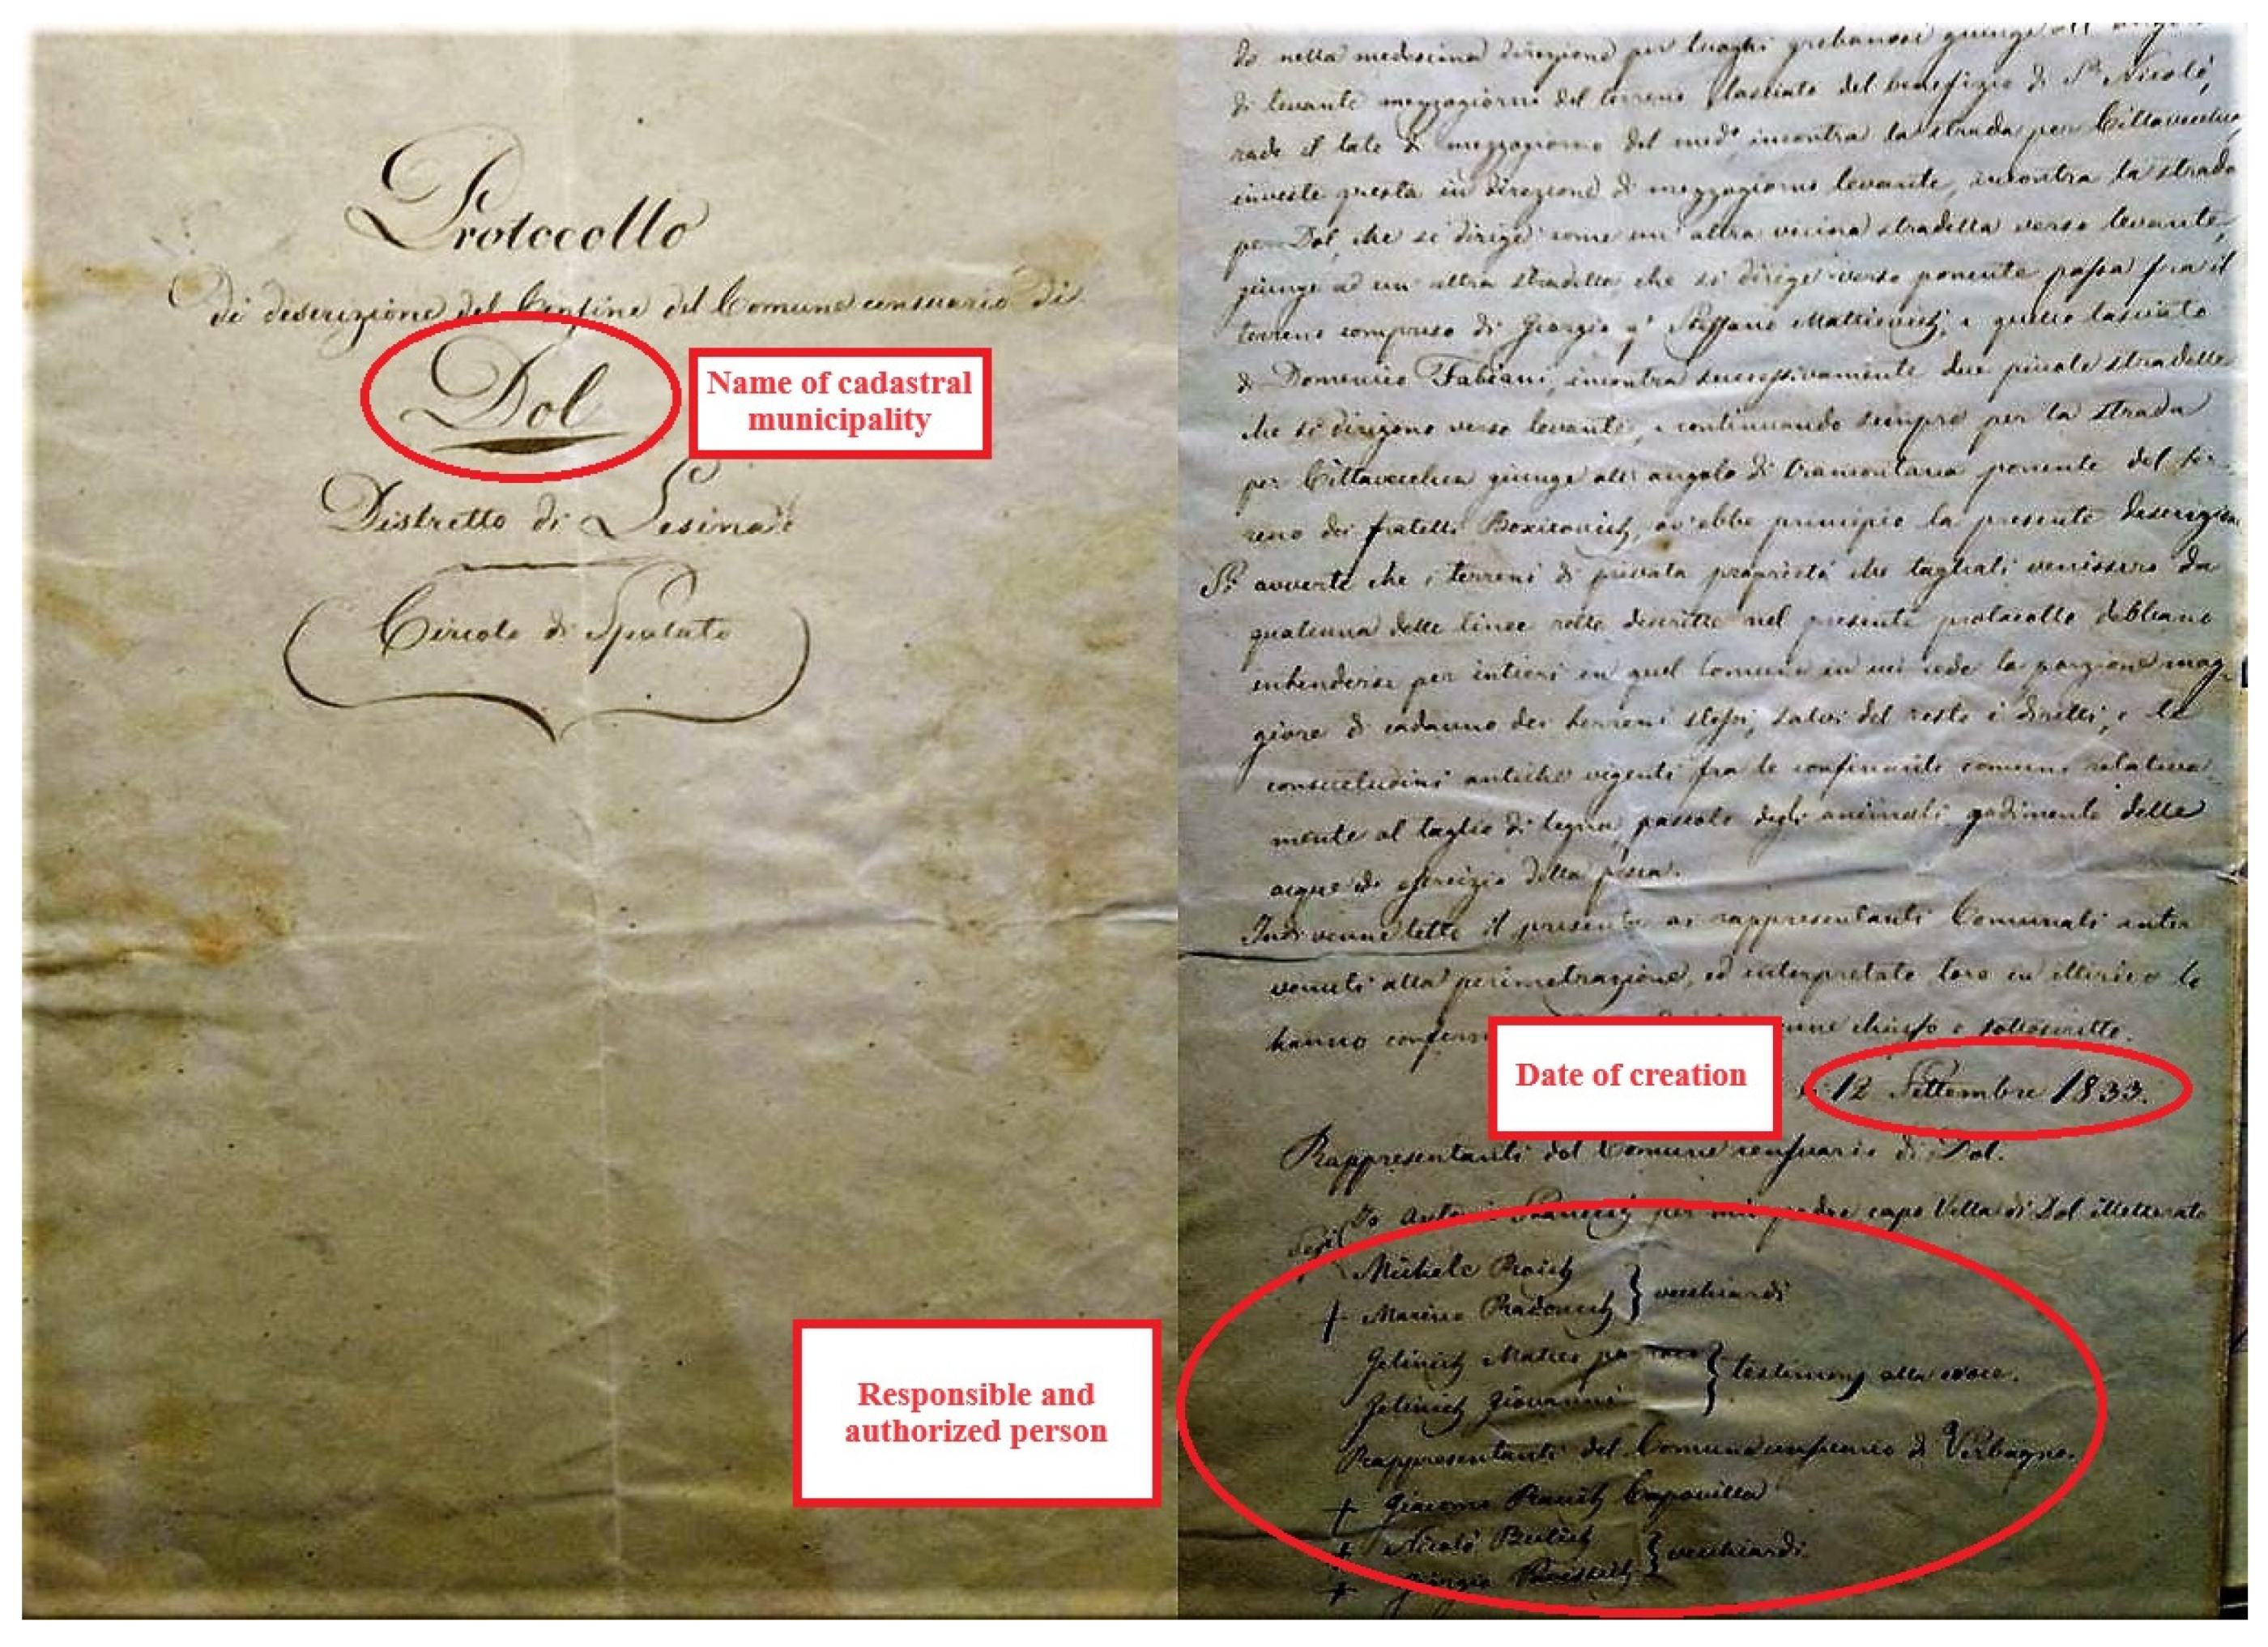 Protocollo
di descrizione del Confine del Comune censuario di
Dol
Name of cadastral
municipality
Distretto di Lesina
Circolo di Spalato
do nella medesima direzione per luoghi grebanosi giunge all'
di levante mezzogiorno del terreno lasciato del benefizio di Sn Nicolò,
rade il lato di mezzogiorno del medo incontra la strada per Cittavecchia
investe questa in direzione di mezzogiorno levante, incontra la strada
per Dol, che si dirige come un' altra vicina stradella verso levante,
giunge ad un' altra stradella che si dirige verso ponente passa fra il
terreno compreso di Giorgio qm Steffano Mattievich, e quello lasciato
di Domenico Fabiani, incontra successivamente due piccole stradelle
che si dirigono verso levante, e continuando sempre per la strada
per Cittavecchia giunge all' angolo di tramontana ponente del ter-
reno dei fratelli ov'ebbe principio la presente descrizione
Si avverte che i terreni di privata proprietà che tagliati venissero da
qualcuna delle linee rette descritte nel presente protocollo debbano
intendersi per intieri in quel Comune in cui cede la porzione mag-
giore di cadauno dei terreni stessi, salvi del resto i diritti, e le
consuetudini antiche vigenti fra le confinanti comuni relativa-
mente al taglio di legna, pascolo degli animali godimento delle
acque ed esercizio della pesca.
Indi venne letto il presente ai rappresentanti Comunali inter-
venuti alla perimetrazione, ed interpretato loro in illirico lo
hanno venne chiuso e sottoscritto.
Date of creation
12 Settembre 1833.
Rappresentanti del Comune censuario di Dol.
Io per mio padre capo Villa di Dol illetterato
Michele
+ Marino Radonich } vecchiardi
Responsible and
authorized person
Gelinich Matteo
Gelinich Giovanni } testimonj alla croce.
Rappresentanti del Comune censuario di Verbagno.
+ Giacomo Capovilla
+ Nicolò
+ Giorgio } vecchiardi